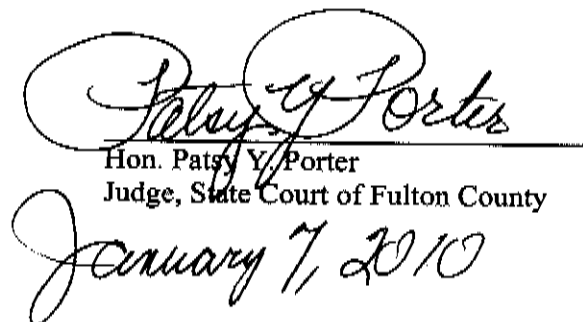 Patsy Y Porter
Hon. Patsy Y. Porter
Judge, State Court of Fulton County
January 7, 2010